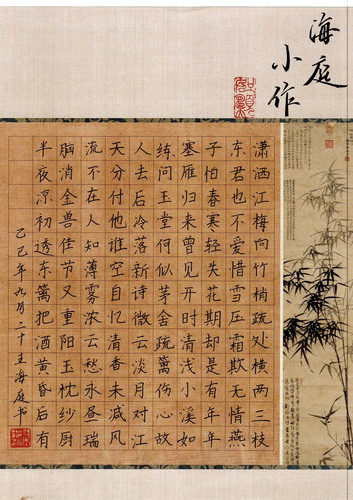 海庭
小作
潇洒江梅向竹梢疏处横两三枝
东君也不爱惜雪压霜欺无情燕
子怕春寒轻失花期却是有年年
塞雁归来曾见开时清浅小溪如
练问玉堂何似茅舍疏篱伤心故
人去后冷落新诗微云淡月对江
天分付他谁空自忆清香未减风
流不在人知薄雾浓云愁永昼瑞
脑消金兽佳节又重阳玉枕纱厨
半夜凉初透东篱把酒黄昏后有
乙巳年九月二十王海庭书